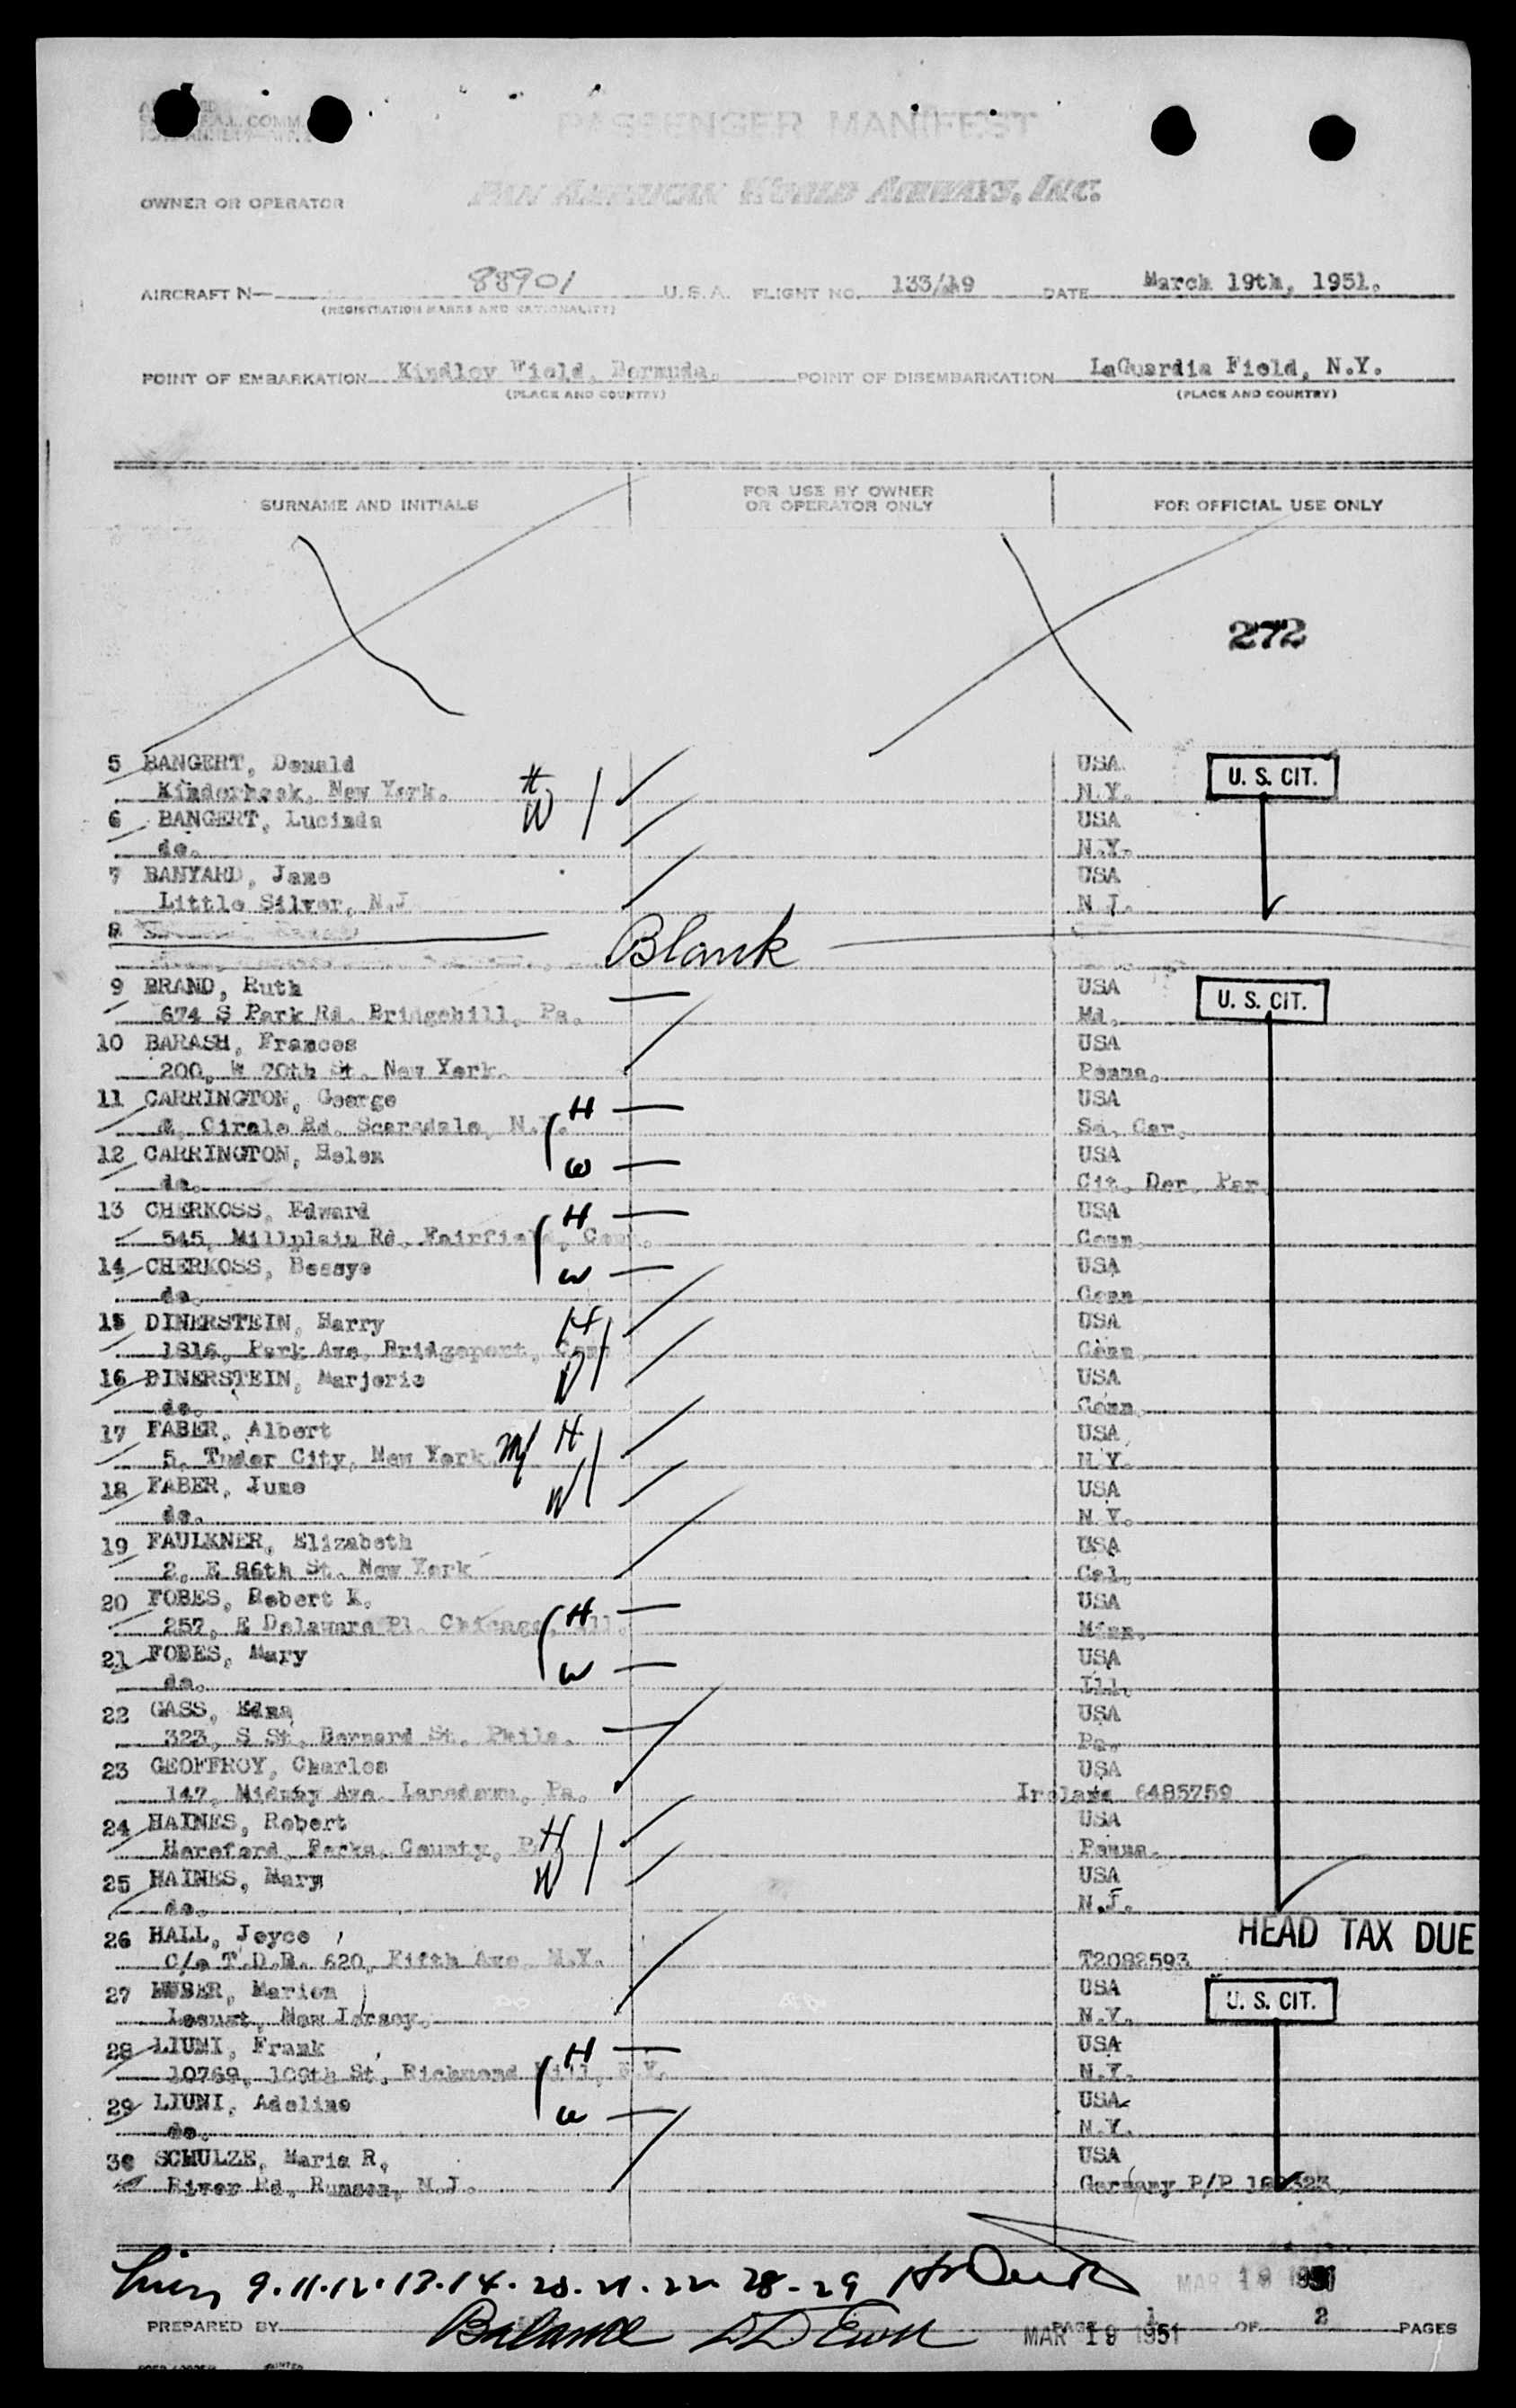 PASSENGER MANIFEST
OWNER OR OPERATOR PAN AMERICAN WORLD AIRWAYS, INC.
AIRCRAFT N— 88901 U.S.A. FLIGHT NO. 133/19 DATE March 19th, 1951.
(REGISTRATION MARKS AND NATIONALITY)
POINT OF EMBARKATION Kindley Field, Bermuda. POINT OF DISEMBARKATION LaGuardia Field, N.Y.
(PLACE AND COUNTRY) (PLACE AND COUNTRY)
SURNAME AND INITIALS FOR USE BY OWNER OR OPERATOR ONLY FOR OFFICIAL USE ONLY
272
5 BANGERT, Donald USA U. S. CIT.
Kinderhook, New York. H N.Y.
6 BANGERT, Lucinda W USA
do. N.Y.
7 BANYARD, Jane USA
Little Silver, N.J N J.
8 Blank
9 BRAND, Ruth USA U. S. CIT.
674 S Park Rd. Bridgehill, Pa. Md.
10 BARASH, Frances USA
200, W 70th St. New York. Penna.
11 CARRINGTON, George H USA
Circle Rd. Scarsdale, N.Y. So. Car.
12 CARRINGTON, Helen W USA
do. Cit. Der. Par
13 CHERKOSS, Edward H USA
545, Millplain Rd. Fairfield, Conn. Conn.
14 CHERKOSS, Bessye W USA
do. Conn
15 DINERSTEIN, Harry H USA
1816, Park Ave, Bridgeport, Conn Conn.
16 DINERSTEIN, Marjorie W USA
do. Conn.
17 FABER, Albert H USA
5, Tudor City, New York N.Y.
18 FABER, June W USA
do. N.Y.
19 FAULKNER, Elizabeth USA
2, E 86th St. New York Cal.
20 FOBES, Robert K. H USA
257, E Delaware Pl. Chicago, Ill. Minn.
21 FOBES, Mary W USA
do. Ill.
22 GASS, Edna USA
323, S St. Bernard St. Phila. Pa.
23 GEOFFROY, Charles USA
147, Midway Ave. Lansdown, Pa. Ireland 6485759
24 HAINES, Robert H USA
Hereford, Berks, County, Pa Penna.
25 HAINES, Mary W USA
do. N.J.
26 HALL, Joyce HEAD TAX DUE
c/o T.D.B. 620, Fifth Ave, N.Y. T2082593
27 HUBER, Marion USA U. S. CIT.
Locust, New Jersey. N.Y.
28 LIUNI, Frank H USA
10769, 109th St, Richmond Hill, N.Y. N.Y.
29 LIUNI, Adeline W USA
do. N.Y.
30 SCHULZE, Maria R. USA
River Rd. Rumson, N.J. Germany P/P
9.11.12.13.14.20.21.22 28-29 MAR 19 1951
PREPARED BY Balance PAGE 1 OF 2 PAGES
MAR 19 1951